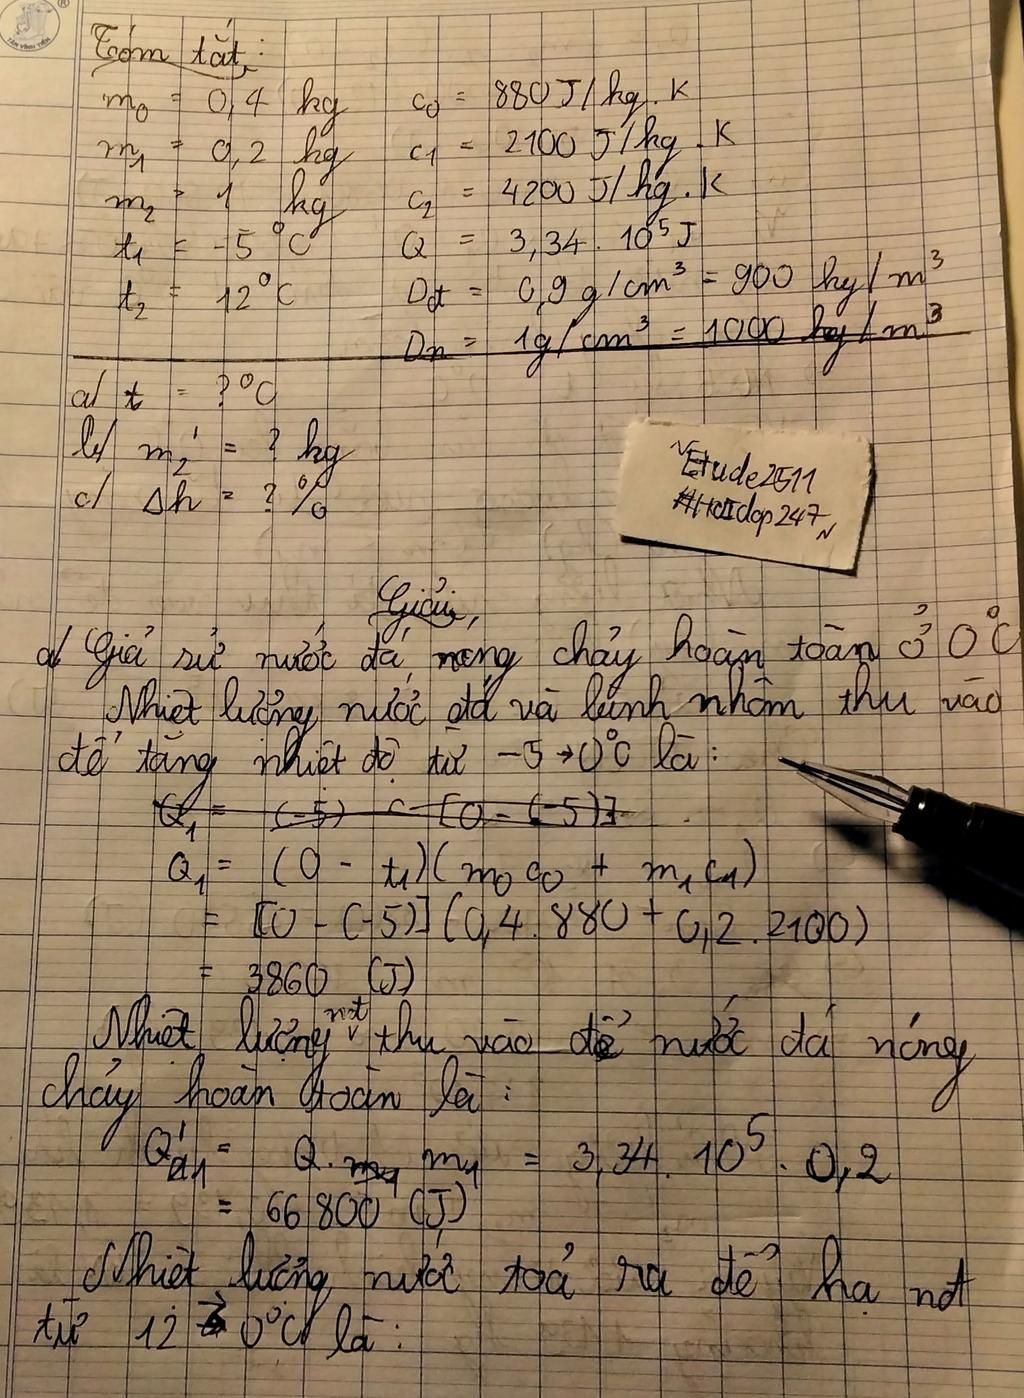 Tóm tắt:
m₀ = 0,4 kg c₀ = 880 J/kg.K
m₁ = 0,2 kg c₁ = 2100 J/kg.K
m₂ = 1 kg c₂ = 4200 J/kg.K
t₁ = -5°C Q = 3,34.10⁵J
t₂ = 12°C Dđ = 0,9 g/cm³ = 900 kg/m³
Dn = 1g/cm³ = 1000 kg/m³
a/ t = ?°C
b/ m₂' = ? kg
c/ Δh = ? %
~Etude2511
#HoiDap247~
Giải
a/ Giả sử nước đá nóng chảy hoàn toàn ở 0°C
Nhiệt lượng nước đá và bình nhôm thu vào
để tăng nhiệt độ từ -5 → 0°C là:
Q₁ = (-5) [0 - (-5)]
Q₁ = (0 - t₁)(m₀c₀ + m₁c₁)
= [0 - (-5)](0,4.880 + 0,2.2100)
= 3860 (J)
Nhiệt lượng nđ thu vào để nước đá nóng
chảy hoàn toàn là:
Q = Q. m₁ = 3,34.10⁵.0,2
= 66 800 (J)
Nhiệt lượng nước toả ra để hạ nđ
từ 12 → 0°C là: